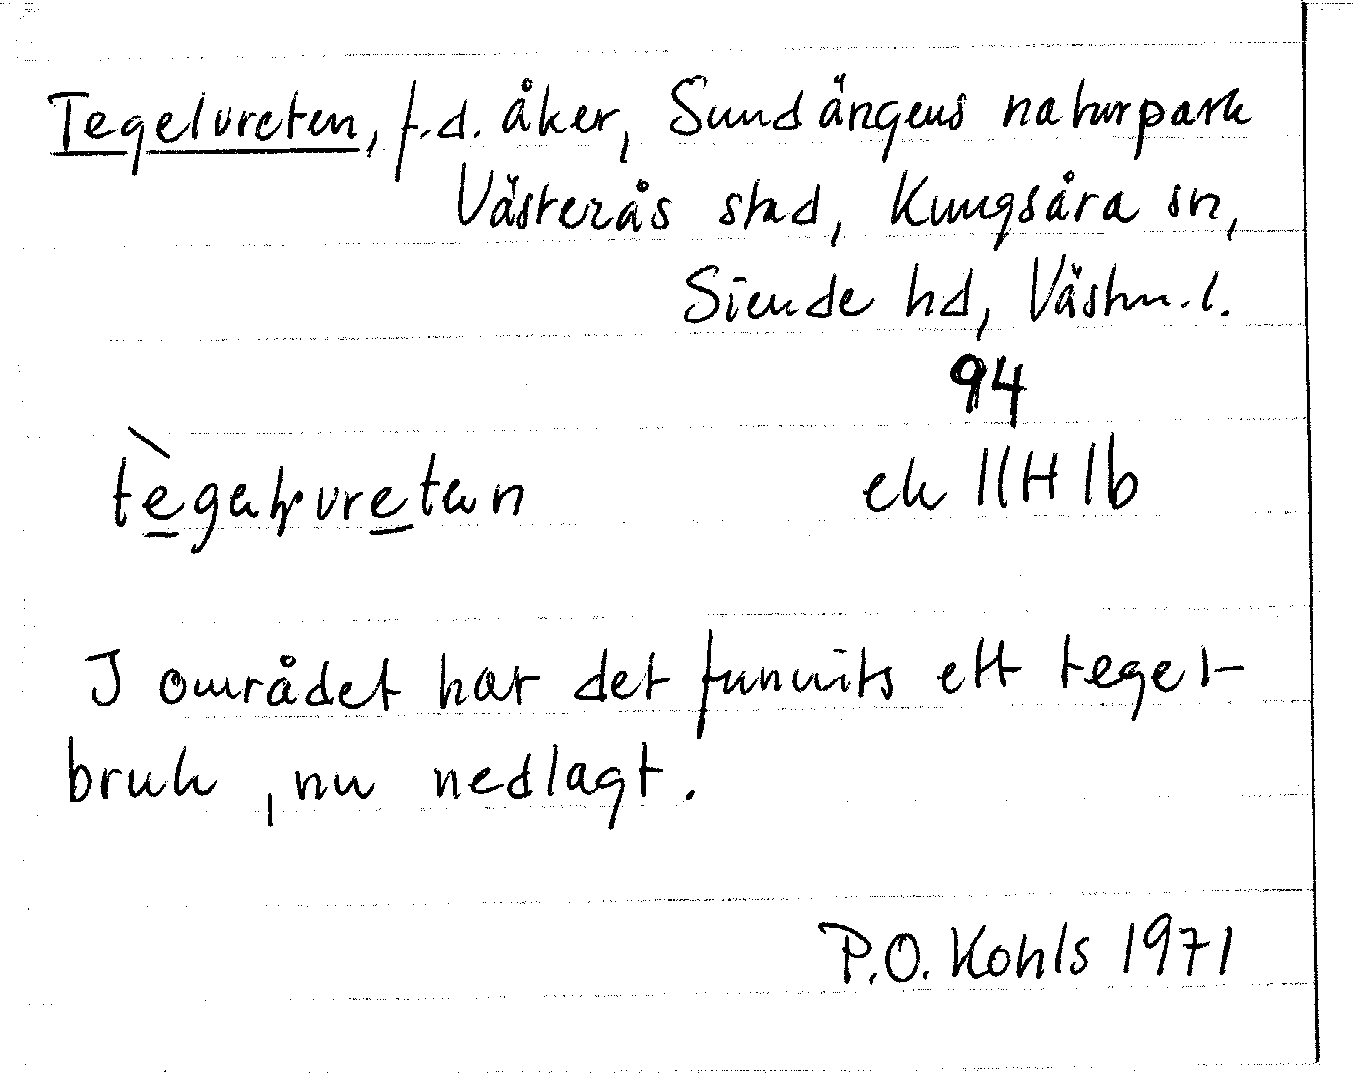 Tegelvreten, f.d. åker, Sundängens naturpark
Västerås stad, Kungsåra sn,
Siende hd, Västm.l.
94
ek 11H 1b
I området har det funnits ett tegel-
bruk, nu nedlagt.
P.O. Kohls 1971